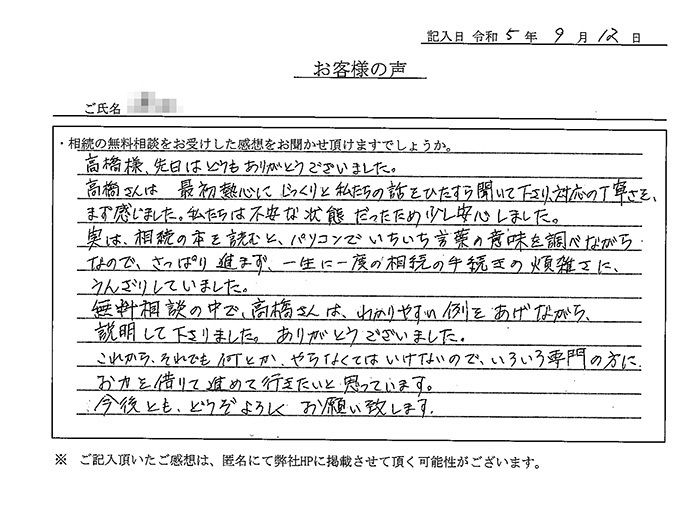 記入日 令和 5 年 9 月 12 日
お客様の声
ご氏名
・相続の無料相談をお受けした感想をお聞かせ頂けますでしょうか。
高橋様、先日はどうもありがとうございました。
高橋さんは 最初熱心にじっくりと私たちの話をひたすら聞いて下さり、対応の丁寧さを、
まず感じました。私たちは不安な状態だったため少し安心しました。
実は、相続の本を読むと、パソコンでいちいち言葉の意味を調べながら
なので、さっぱり進まず、一生に一度の相続の手続きの煩雑さに、
うんざりしていました。
無料相談の中で、高橋さんは、わかりやすい例をあげながら、
説明して下さりました。ありがとうございました。
これから、それでも何とか、やらなくてはいけないので、いろいろ専門の方に
お力を借りて進めて行きたいと思っています。
今後とも、どうぞよろしくお願い致します。
※ ご記入頂いたご感想は、匿名にて弊社HPに掲載させて頂く可能性がございます。